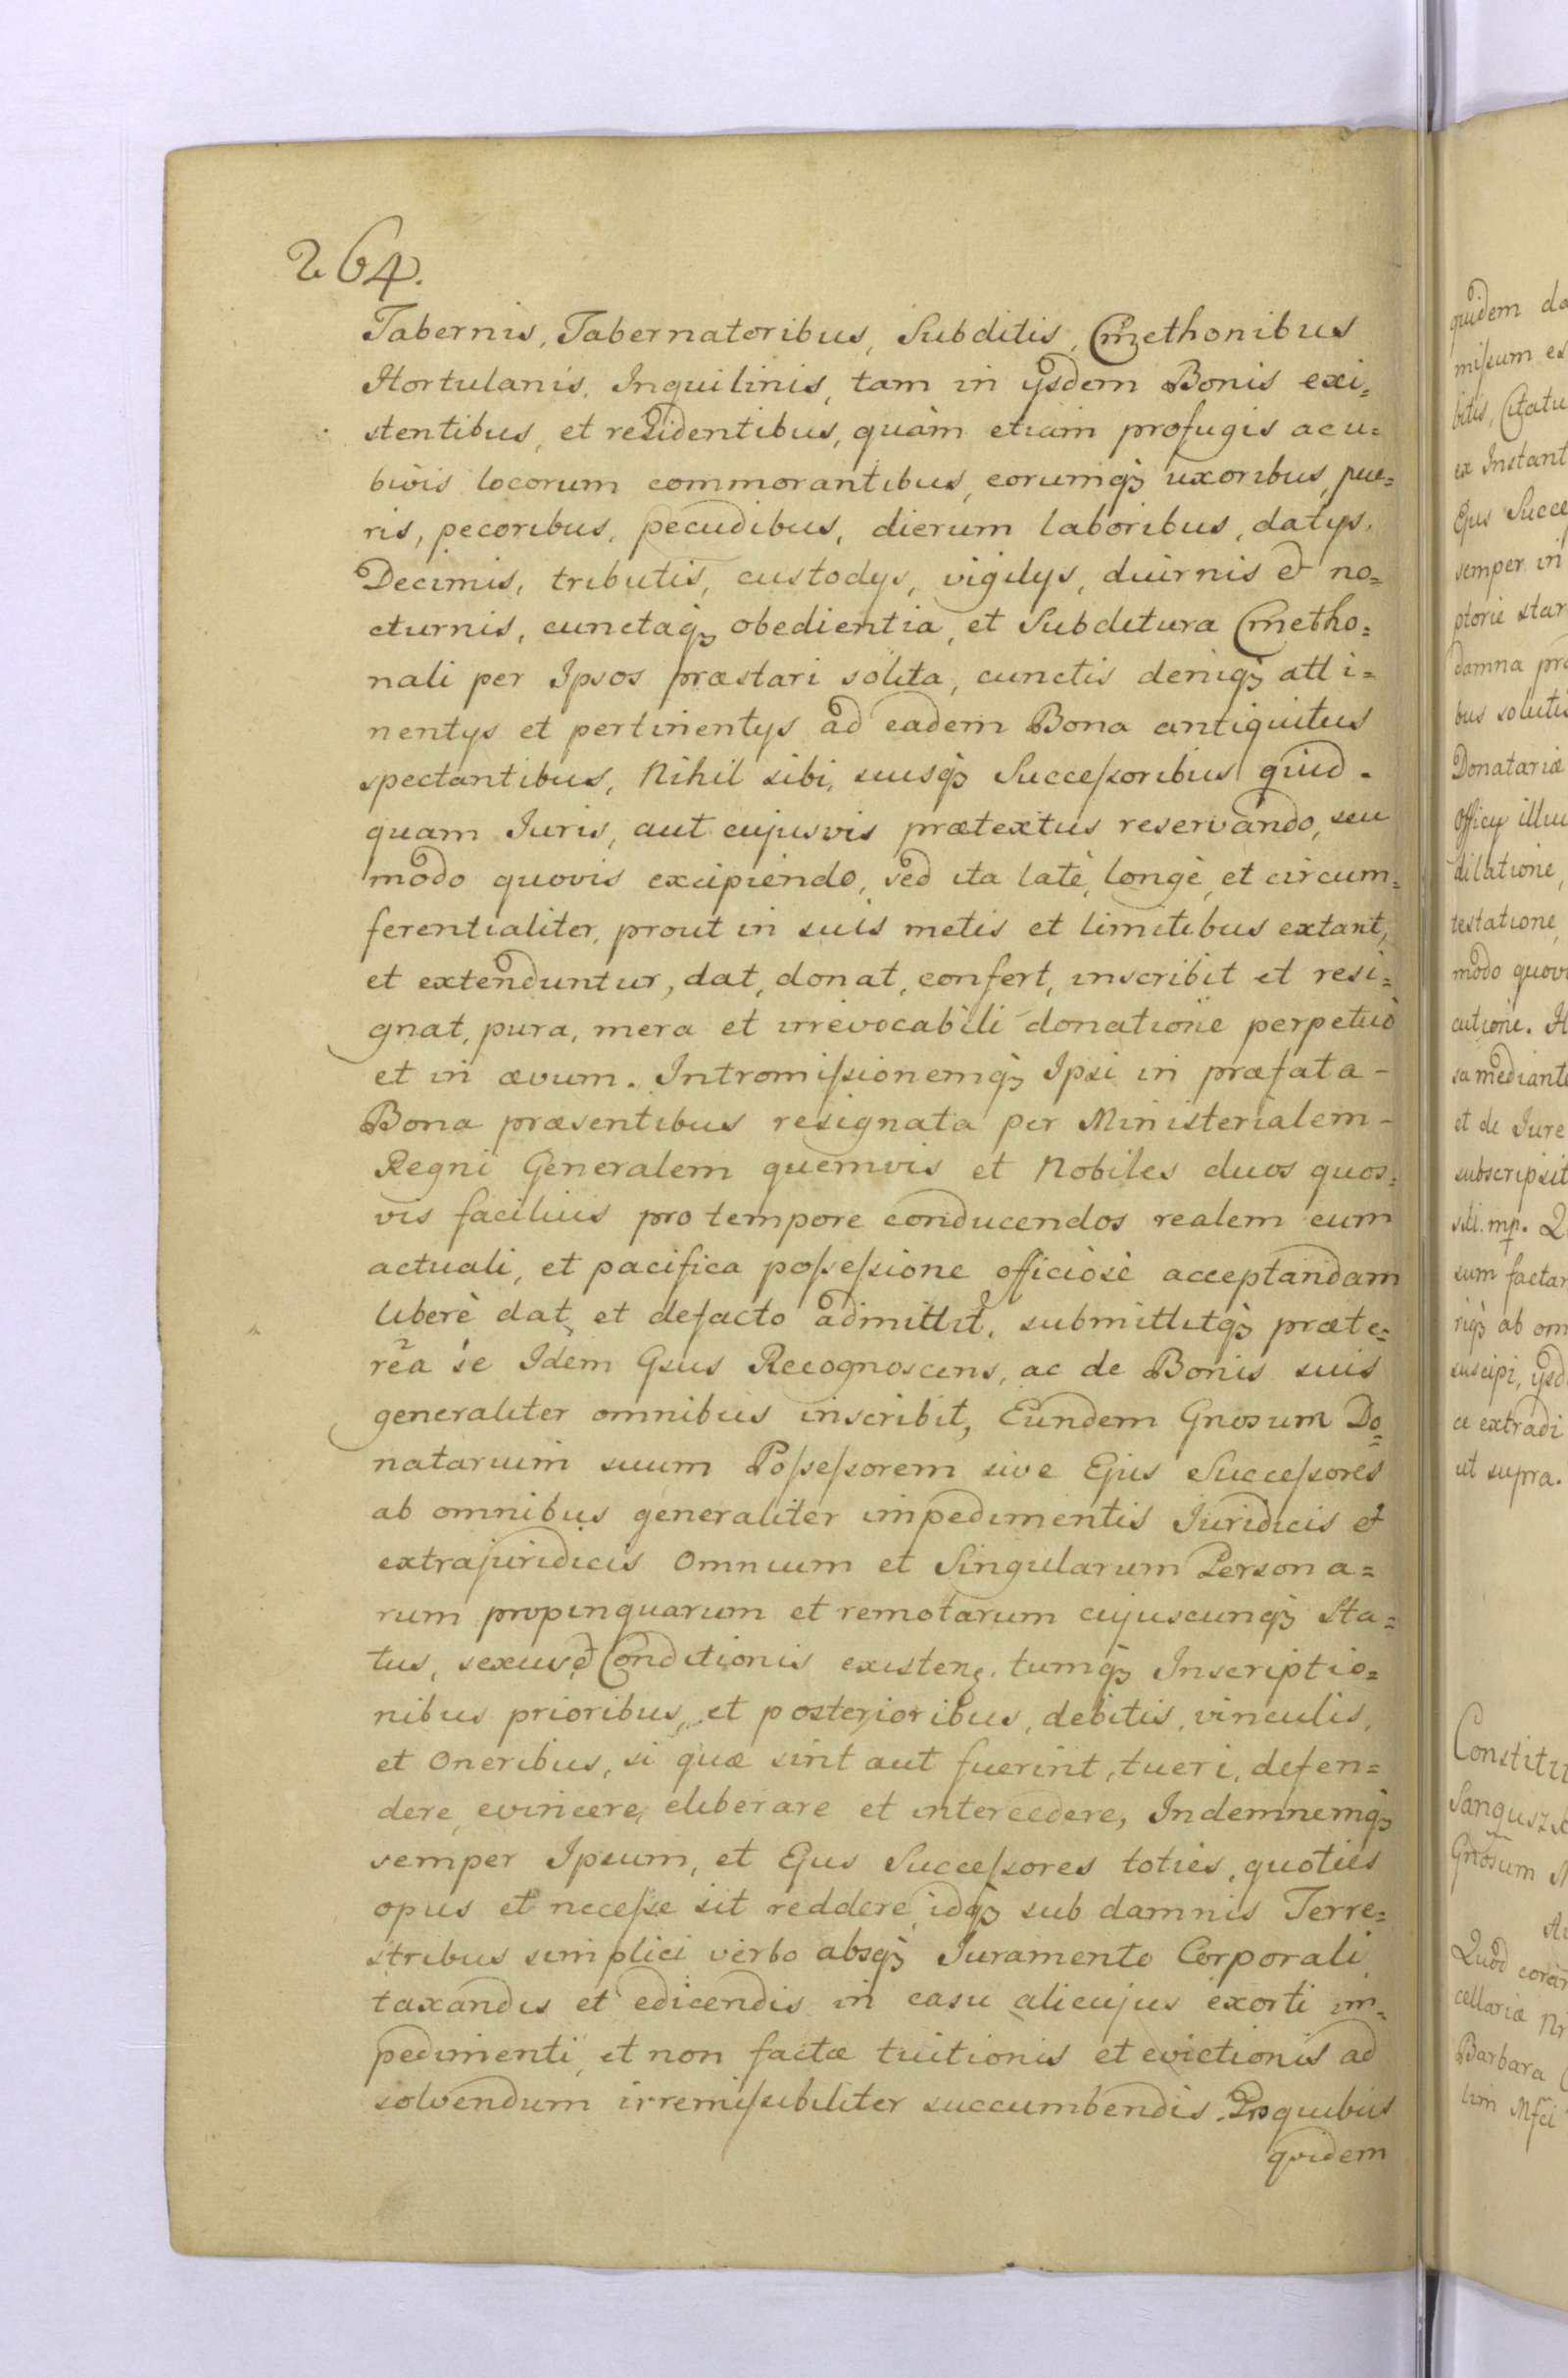 264.
Tabernis, Tabernatoribus, Subditis, Cmethonibus
Hortulanis, Inquilinis, tam in ijsdem Bonis exi=
stentibus, et residentibus, quàm etiam profugis ac u=
bivis locorum commorantibus, eorumqꝫ uxoribus, pue=
ris, pecoribus, pecudibus, dierum laboribus, datijs,
Decimis, tributis, custodijs, vigilijs, diurnis et no=
cturnis, cunctaqꝫ obedientia, et Subditura Cmetho=
nali per Ipsos præstari solita, cunctis deniqꝫ atti=
nentijs et pertinentijs ad eadem Bona antiquitus
spectantibus, Nihil sibi, suisqꝫ Successoribus quid=
quam Iuris, aut cujusvis prætextus reservando, seu
modo quovis excipiendo, sed ita latè, longè, et circum=
ferentialiter, prout in suis metis et limitibus extant,
et extenduntur, dat, donat, confert, inscribit et resi=
gnat, pura, mera et irrevocabili donatione perpetuò
et in ævum. Intromissionemqꝫ Ipsi in præfata -
Bona præsentibus resignata per Ministerialem -
Regni Generalem quemvis et Nobiles duos quos=
vis facilius pro tempore conducendos realem cum
actuali, et pacifica possessione officiosè acceptandam
liberè dat, et defacto admittit, submittitqꝫ præte=
rea se Idem Gsus Recognoscens, ac de Bonis suis
generaliter omnibus inscribit, Eundem Gnosum Do=
natarium suum Possessorem sive Ejus Successores
ab omnibus generaliter impedimentis Iuridicis et
extrajuridicis omnium et Singularum Persona=
rum propinquarum et remotarum cujuscunqꝫ Sta=
tus, sexusvè Conditionis existen. tumqꝫ Inscriptio=
nibus prioribus, et posterioribus, debitis, vinculis,
et oneribus, si quæ sint aut fuerint, tueri, defen=
dere, evincere, eliberare et intercedere, Indemnemqꝫ
semper Ipsum, et Ejus Successores toties, quoties
opus et necesse sit reddere, idqꝫ sub damnis Terre=
stribus simplici verbo absqꝫ Iuramento Corporali
taxandis et edicendis in casu alicujus exorti im=
pedimenti, et non factæ tuitionis et evictionis ad
solvendum irremissibiliter succumbendis. Pro quibus
quidem
quidem
bitis, Citatu
ex Instant
Ejus Succe
semper in
ptorie star
damna pro
bus solutis
Donatariæ
Officij illiu
dilatione,
testatione,
modo quov
sa mediante
et de Jure
subscripsit
sum factar
riqꝫ ab om
suscipi, ijsd
ce extradi
ut supra.
Constitu
Sanguszk
Gnosum
Quod coram
cellariæ Nr
Barbara